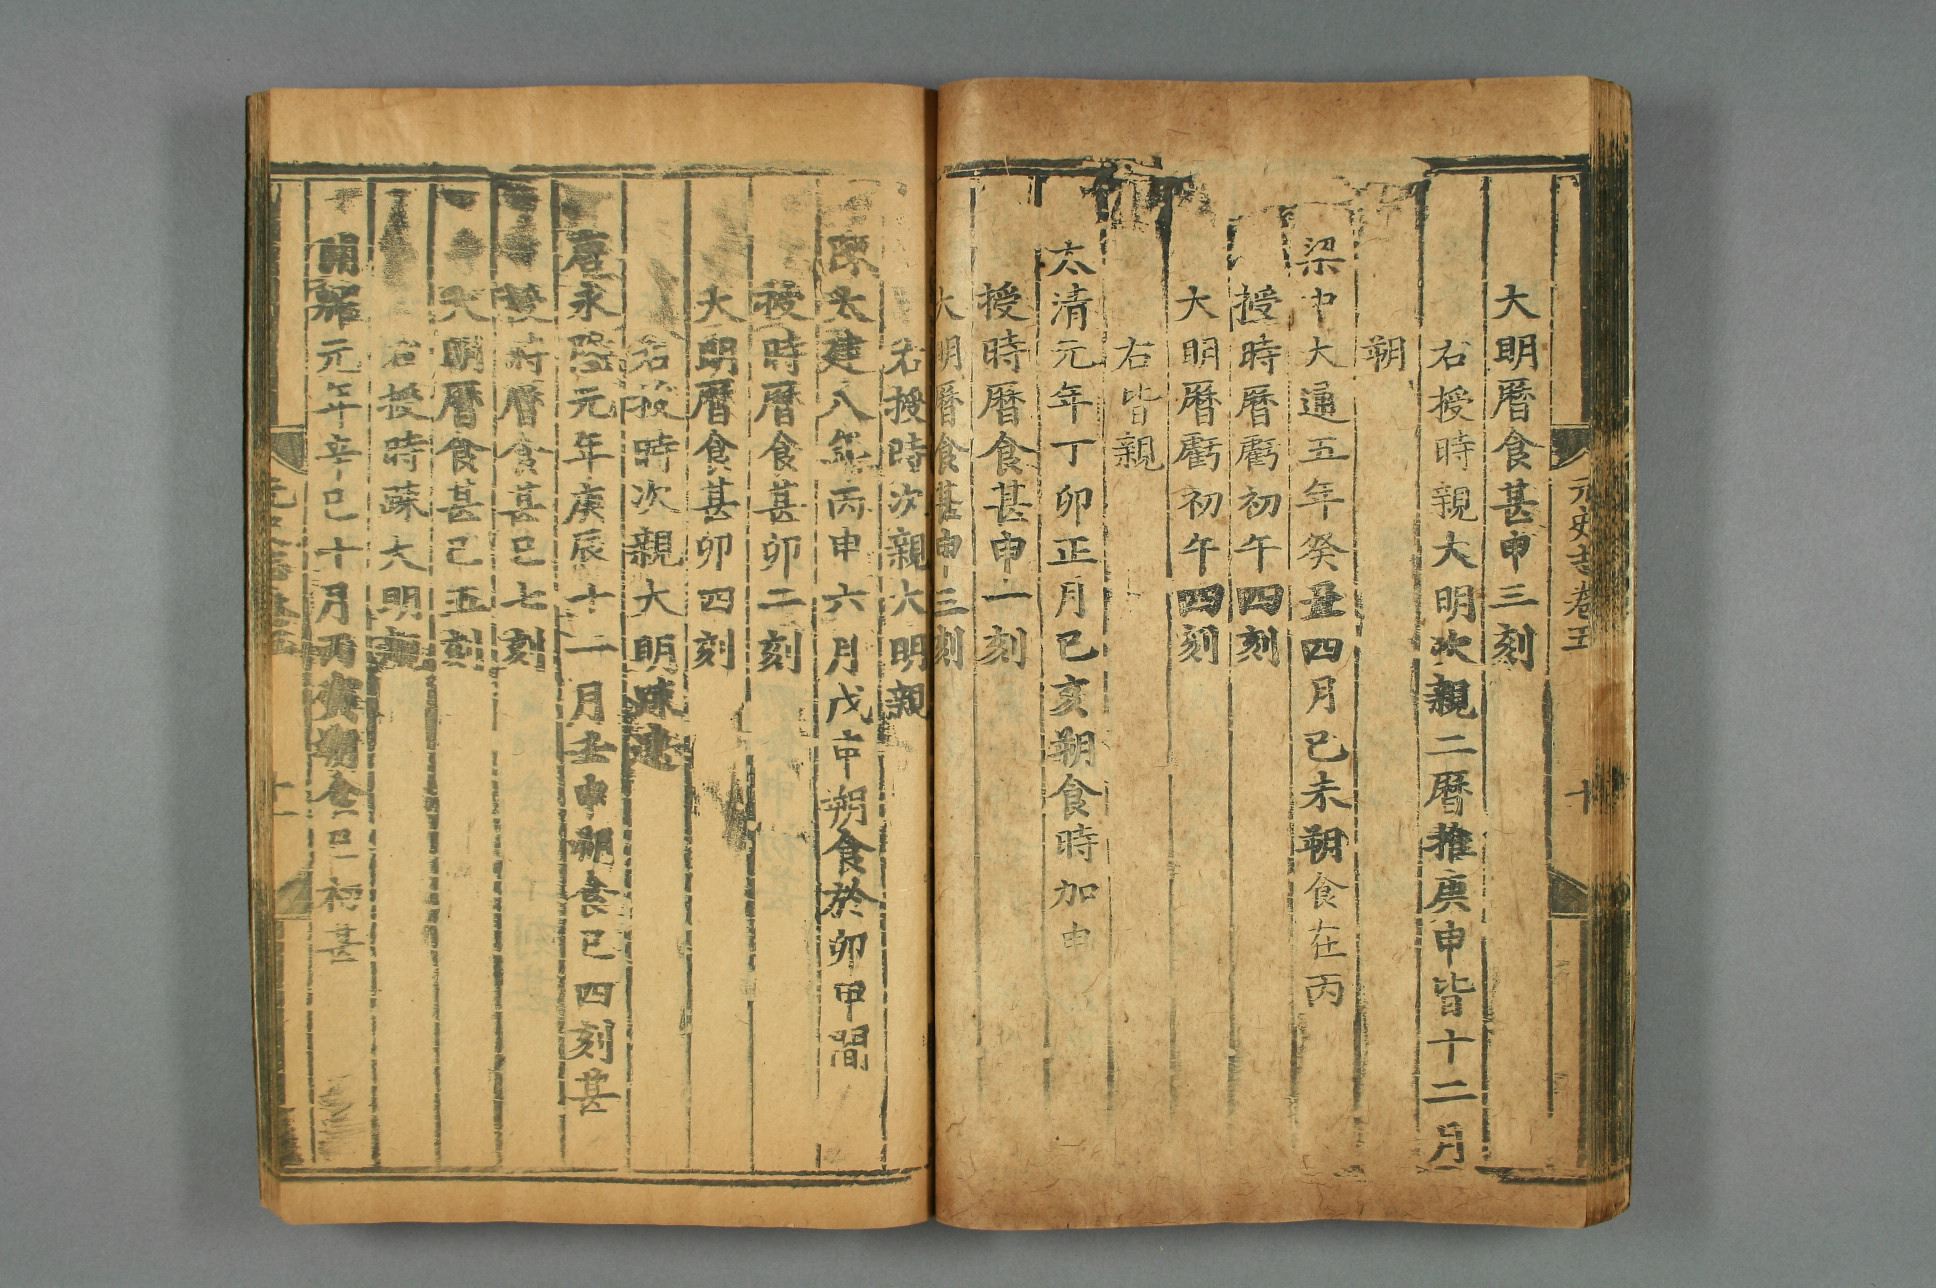 元史志卷五 十
大明曆食甚申三刻
右授時親大明次親二曆推庚申皆十二月
朔
梁中大通五年癸丑四月己未朔食在丙
授時曆虧初午四刻
大明曆虧初午四刻
右皆親
太清元年丁卯正月己亥朔食時加申
授時曆食甚申一刻
大明曆食甚申三刻
右授時次親大明親
陳太建八年丙申六月戊申朔食於卯甲間
授時曆食甚卯二刻
大明曆食甚卯四刻
右授時次親大明疎遠
唐永隆元年庚辰十一月壬申朔食巳四刻甚
授時曆食甚巳七刻
大明曆食甚巳五刻
右授時疎大明親
開耀元年辛巳十月丙寅朔食巳初甚
元史志卷五 十一